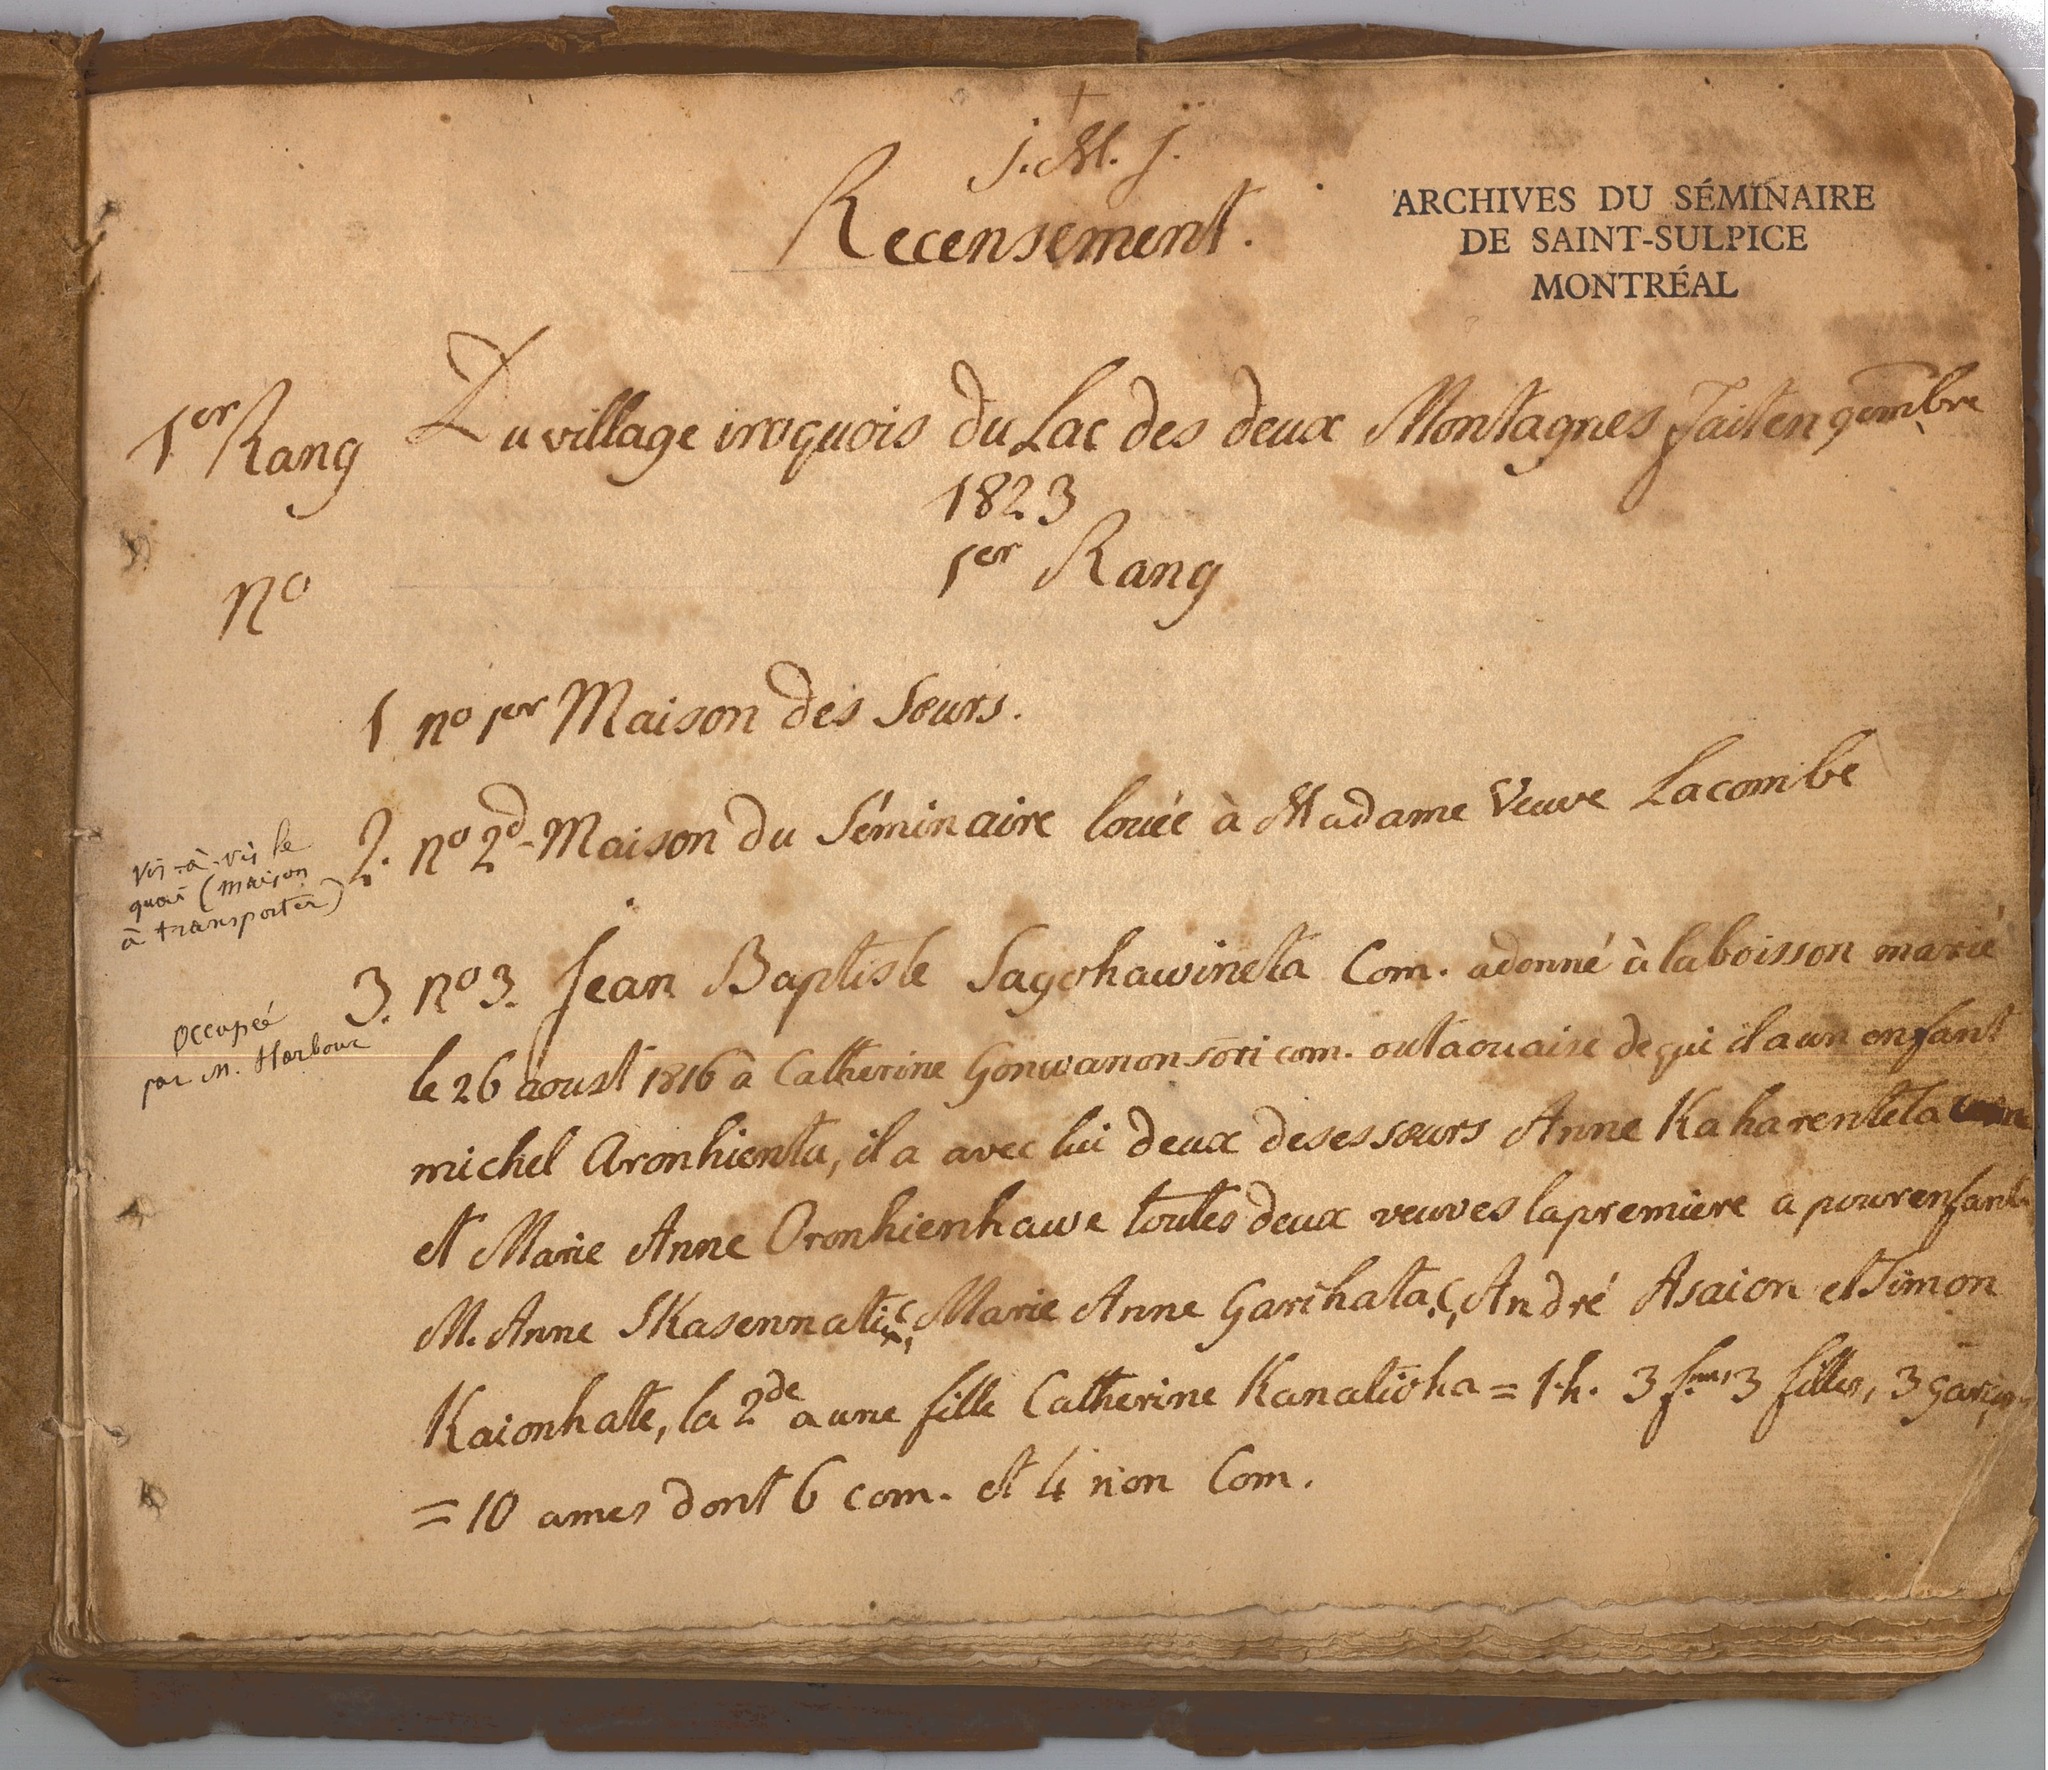 J. M. J.
Recensement.
ARCHIVES DU SÉMINAIRE
DE SAINT-SULPICE
MONTRÉAL
1er Rang
Du village iroquois du Lac des deux Montagnes fait en 9embre
1823
1er Rang
No
1 no 1er Maison des Sœurs.
2. no 2d - Maison du Séminaire louée à Madame Veuve Lacombe
vis-à-vis le
quai (maison
à transporter)
3. no 3. Jean Baptiste Sagohawineta Com. adonné à la boisson marié
occupée
par M. Harbour
le 26 aoust 1816 à Catherine Gonwanonsoti com. outaouaise de qui il a un enfant
michel Aronhienta, il a avec lui deux de ses sœurs Anne Kaharenteta
et Marie Anne Oronhienhawe toutes deux veuves la premiere a pour enfant
M. Anne Skasennati, Marie Anne Garihata, André Asaion et Simon
Kaionhate, la 2de a une fille Catherine Kanatioha = 1. h. 3 fem. 3 filles, 3 garçons
= 10 ames dont 6 com. et 4 non Com.